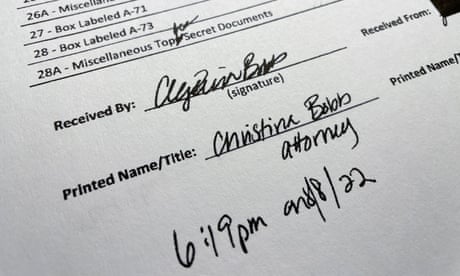 26A - Miscellan
27 - Box Labeled A-71
28 - Box Labeled A-73
28A - Miscellaneous Top Secret Documents
Received By: Christina Bobb
(signature)
Received From:
Printed Name/Title: Christina Bobb
attorney
Printed Name/T
6:19pm /8/22